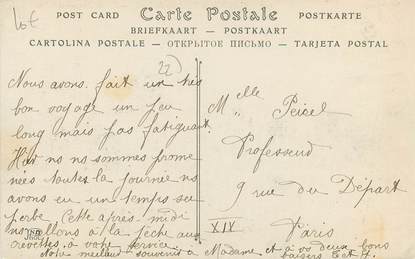 10€
POST CARD Carte Postale POSTKARTE
BRIEFKAART — POSTKAART
CARTOLINA POSTALE — ОТКРЫТОЕ ПИСЬМО — TARJETA POSTAL
22)
Nous avons fait un très
bon voyage un peu
long mais pas fatiguant.
Hier ns ns sommes prome
nées toute la journée ns
avons eu un temps su
perbe. Cette après-midi
ns allons à la pêche aux
crevettes, à votre service
Notre meilleur souvenir à Madame et à vs deux bons
baisers
Melle
Professeur
9 rue du Départ
XIV
Paris